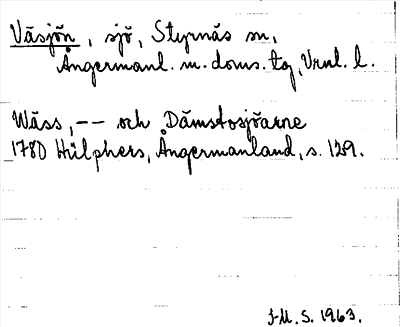 Väsjön, sjö, Styrnäs sn,
Ångermanl. m. doms. tg, Vrnl. l.
Wäss, -- och Dämstosjöarne
1780 Hülphers, Ångermanland, s. 129.
I-M. S. 1963.